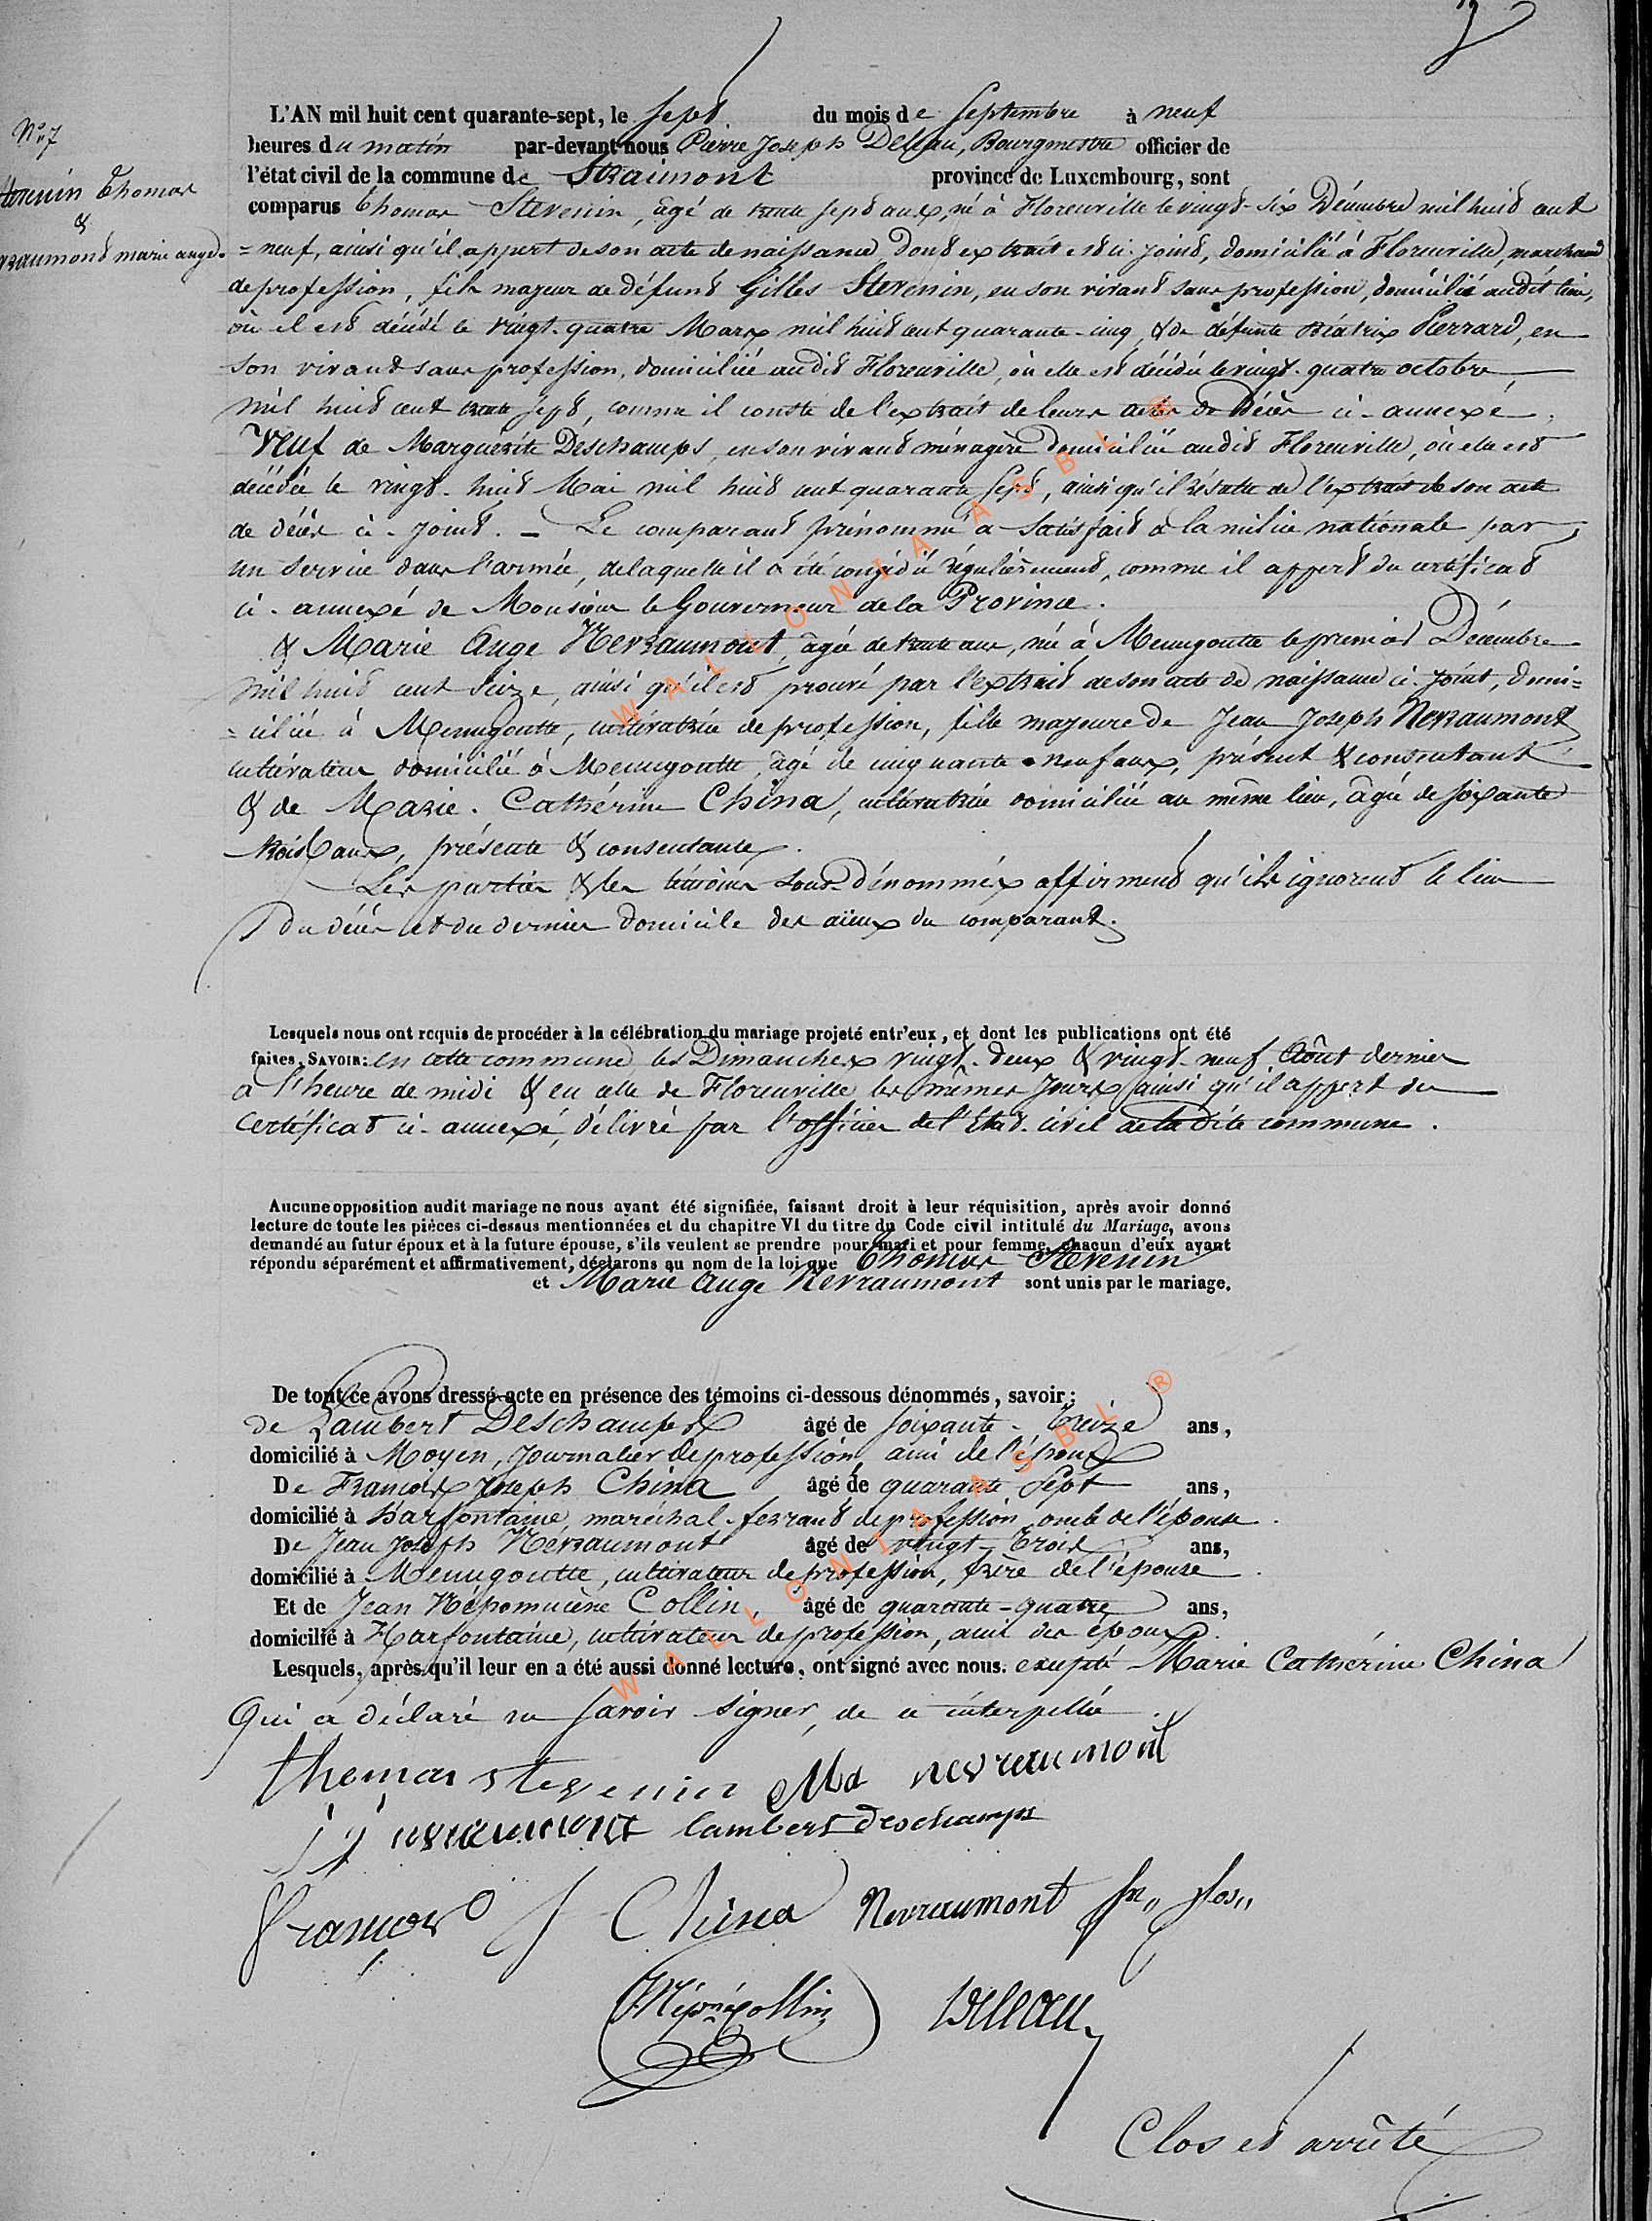 N° 7
Stevenin Thomas
&
Nevraumont marie ange.
L'AN mil huit cent quarante-sept, le sept du mois de Septembre à neuf
heures du matin par-devant nous Pierre Joseph Delleau, Bourgmestre officier de
l'état civil de la commune de Straimont province de Luxembourg, sont
comparus Thomas Stevenin, âgé de trente sept ans, né à Florenville le vingt-six Décembre mil huit cent
= neuf, ainsi qu'il appert de son acte de naissance dont extrait est ci-joint, domicilié à Florenville, marchand
de profession, fils majeur de défunt Gilles Stevenin, en son vivant sans profession, domicilié audit lieu,
où il est décédé le vingt-quatre Mars mil huit cent quarante-cinq, & de défunte Béatrix Pierrard, en
son vivant sans profession, domiciliée audit Florenville, où elle est décédée le vingt-quatre octobre
mil huit cent trente sept, comme il conste de l'extrait de leurs actes de Décès ci-annexé.
Veuf de Marguérite Deschamps, en son vivant ménagère domiciliée audit Florenville, où elle est
décédée le vingt-huit Mai mil huit cent quarante sept, ainsi qu'il résulte de l'extrait de son acte
de décès ci-joint. - Le comparant prénommé a satisfait à la milice nationale par
un service dans l'armée, de laquelle il a été congédié régulièrement, comme il appert du certificat
ci-annexé de Monsieur le Gouverneur de la Province.
& Marie Ange Nevraumont, âgée de trente ans, née à Menugoutte le premier Décembre
mil huit cent seize, ainsi qu'il est prouvé par l'extrait de son acte de naissance ci-joint, domi=
=ciliée à Menugoutte, cultivatrice de profession, fille majeure de Jean Joseph Nevraumont
cultivateur domicilié à Menugoutte, âgé de cinquante neuf ans, présent & consentant
& de Marie-Cathérine China, cultivatrice domiciliée au même lieu, âgée de soixante
trois ans, présente & consentante.
Les parties & les témoins sous-dénommés affirment qu'ils ignorent le lieu
du décès et du dernier domicile des aïeux du comparant.
Lesquels nous ont requis de procéder à la célébration du mariage projeté entr'eux, et dont les publications ont été
faites, SAVOIR: en cette commune, les Dimanches vingt-deux & vingt-neuf Août dernier
à l'heure de midi & en celle de Florenville les mêmes jours, ainsi qu'il appert du
certificat ci-annexé, délivré par l'officier de l'Etat-civil de la dite commune.
Aucune opposition audit mariage ne nous ayant été signifiée, faisant droit à leur réquisition, après avoir donné
lecture de toute les pièces ci-dessus mentionnées et du chapitre VI du titre du Code civil intitulé du Mariage, avons
demandé au futur époux et à la future épouse, s'ils veulent se prendre pour mari et pour femme, chacun d'eux ayant
répondu séparément et affirmativement, déclarons au nom de la loi que Thomas Stevenin
et Marie Ange Nevraumont sont unis par le mariage.
De tout ce avons dressé acte en présence des témoins ci-dessous dénommés, savoir:
de Lambert Deschamps âgé de soixante-treize ans,
domicilié à Moyen, journalier de profession, ami de l'époux
De François Joseph China âgé de quarante sept ans,
domicilié à Harfontaine, maréchal-ferrant de profession oncle de l'épouse.
De Jean Joseph Nevraumont âgé de vingt-trois ans,
domicilié à Menugoutte, cultivateur de profession, frère de l'épouse.
Et de Jean Népomucène Collin, âgé de quarante-quatre ans,
domicilié à Harfontaine, cultivateur de profession, ami des époux.
Lesquels, après qu'il leur en a été aussi donné lecture, ont signé avec nous. excepté Marie Cathérine China
Qui a déclaré ne savoir signer, de ce interpellée.
thomas stevenin Ma nevreaumont
j j nevreaumont lambert deschamps
françois J China Nevraumont Jn Jos
Népne Collin Delleau
Clos et arrêté
WALLONIA ASBL ®
WALLONIA ASBL ®